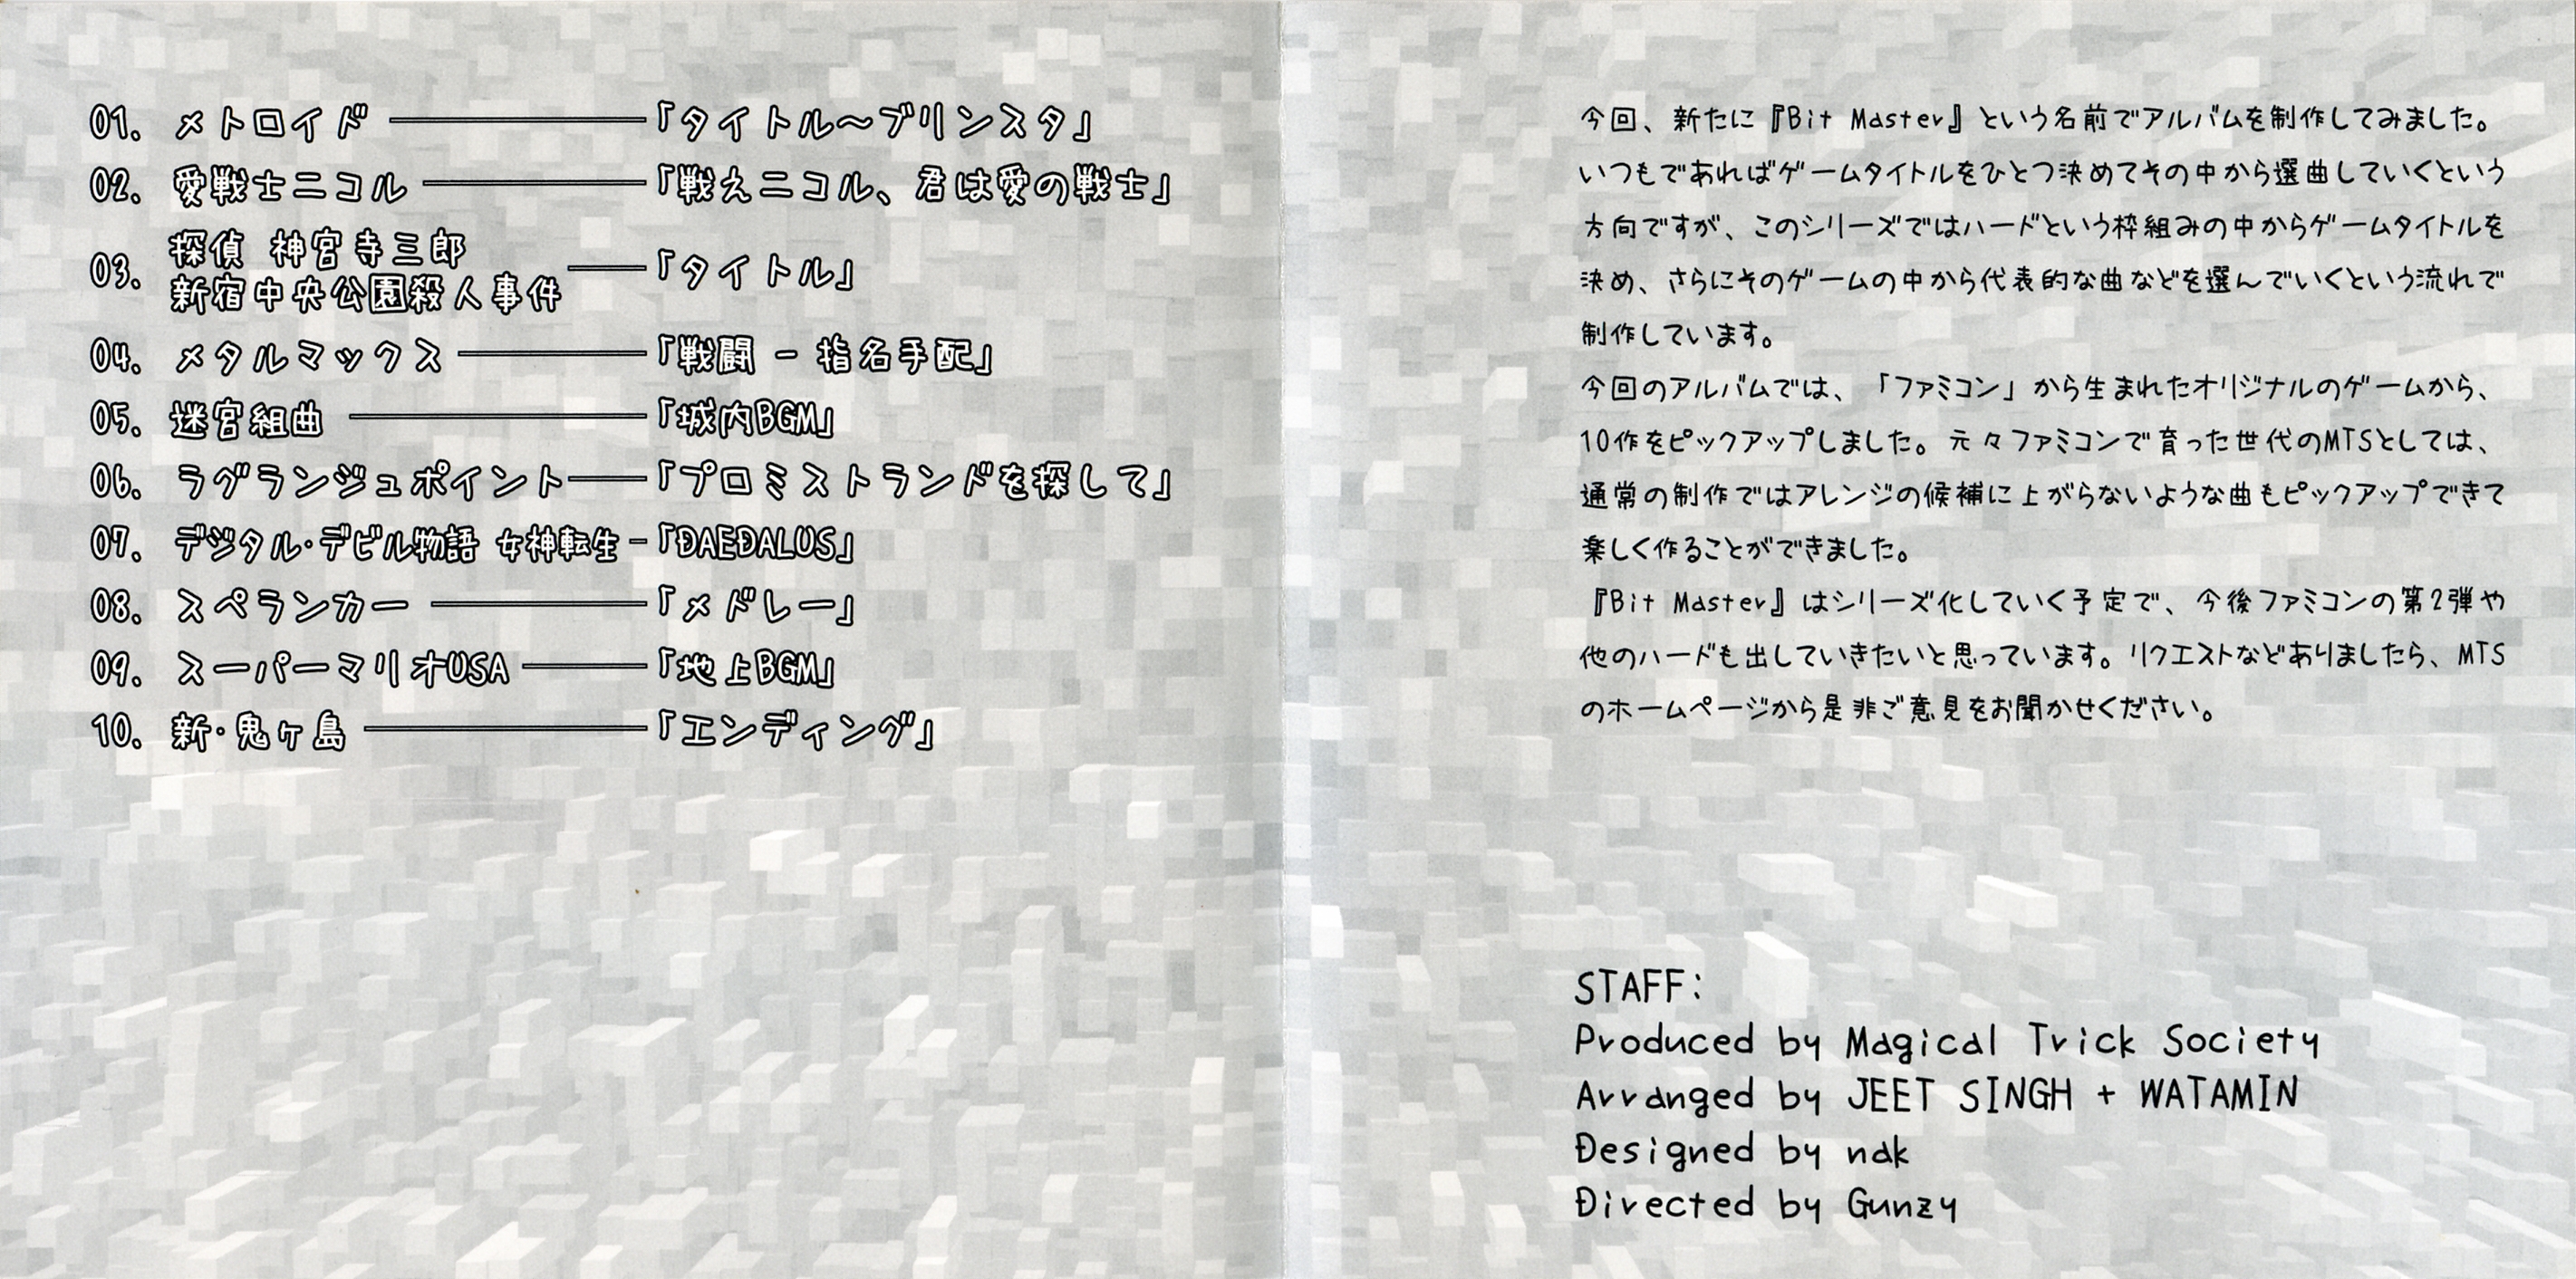 01. メトロイド ─ 「タイトル～ブリンスタ」
02. 愛戦士ニコル ─ 「戦えニコル、君は愛の戦士」
03. 探偵 神宮寺三郎
新宿中央公園殺人事件 ─ 「タイトル」
04. メタルマックス ─ 「戦闘 - 指名手配」
05. 迷宮組曲 ─ 「城内BGM」
06. ラグランジュポイント ─ 「プロミストランドを探して」
07. デジタル・デビル物語 女神転生 ─ 「DAEDALUS」
08. スペランカー ─ 「メドレー」
09. スーパーマリオUSA ─ 「地上BGM」
10. 新・鬼ヶ島 ─ 「エンディング」
今回、新たに『Bit Master』という名前でアルバムを制作してみました。
いつもであればゲームタイトルをひとつ決めてその中から選曲していくという
方向ですが、このシリーズではハードという枠組みの中からゲームタイトルを
決め、さらにそのゲームの中から代表的な曲などを選んでいくという流れで
制作しています。
今回のアルバムでは、「ファミコン」から生まれたオリジナルのゲームから、
10作をピックアップしました。元々ファミコンで育った世代のMTSとしては、
通常の制作ではアレンジの候補に上がらないような曲もピックアップできて
楽しく作ることができました。
『Bit Master』はシリーズ化していく予定で、今後ファミコンの第2弾や
他のハードも出していきたいと思っています。リクエストなどありましたら、MTS
のホームページから是非ご意見をお聞かせください。
STAFF:
Produced by Magical Trick Society
Arranged by JEET SINGH + WATAMIN
Designed by nak
Directed by Gunzy